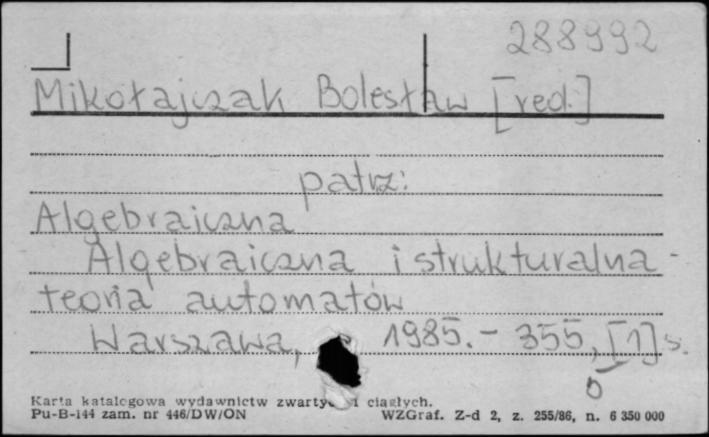 288992
Mikołajczak Bolesław [red.]
patrz:
Algebraiczna
Algebraiczna i strukturalna
teoria automatów
Warszawa, 1985. - 355, [1] s.
Karta katalogowa wydawnictw zwartych i ciągłych.
Pu-B-144 zam. nr 446/DW/ON WZGraf. Z-d 2, z. 255/86, n. 6 350 000